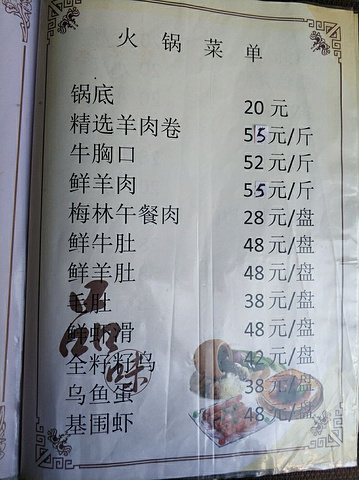 火锅菜单
锅底 20元
精选羊肉卷 55元/斤
牛胸口 52元/斤
鲜羊肉 55元/斤
梅林午餐肉 28元/盘
鲜牛肚 48元/盘
鲜羊肚 48元/盘
毛肚 38元/盘
鲜虾滑 48元/盘
全籽籽乌 42元/盘
乌鱼蛋 38元/盘
基围虾 48元/盘